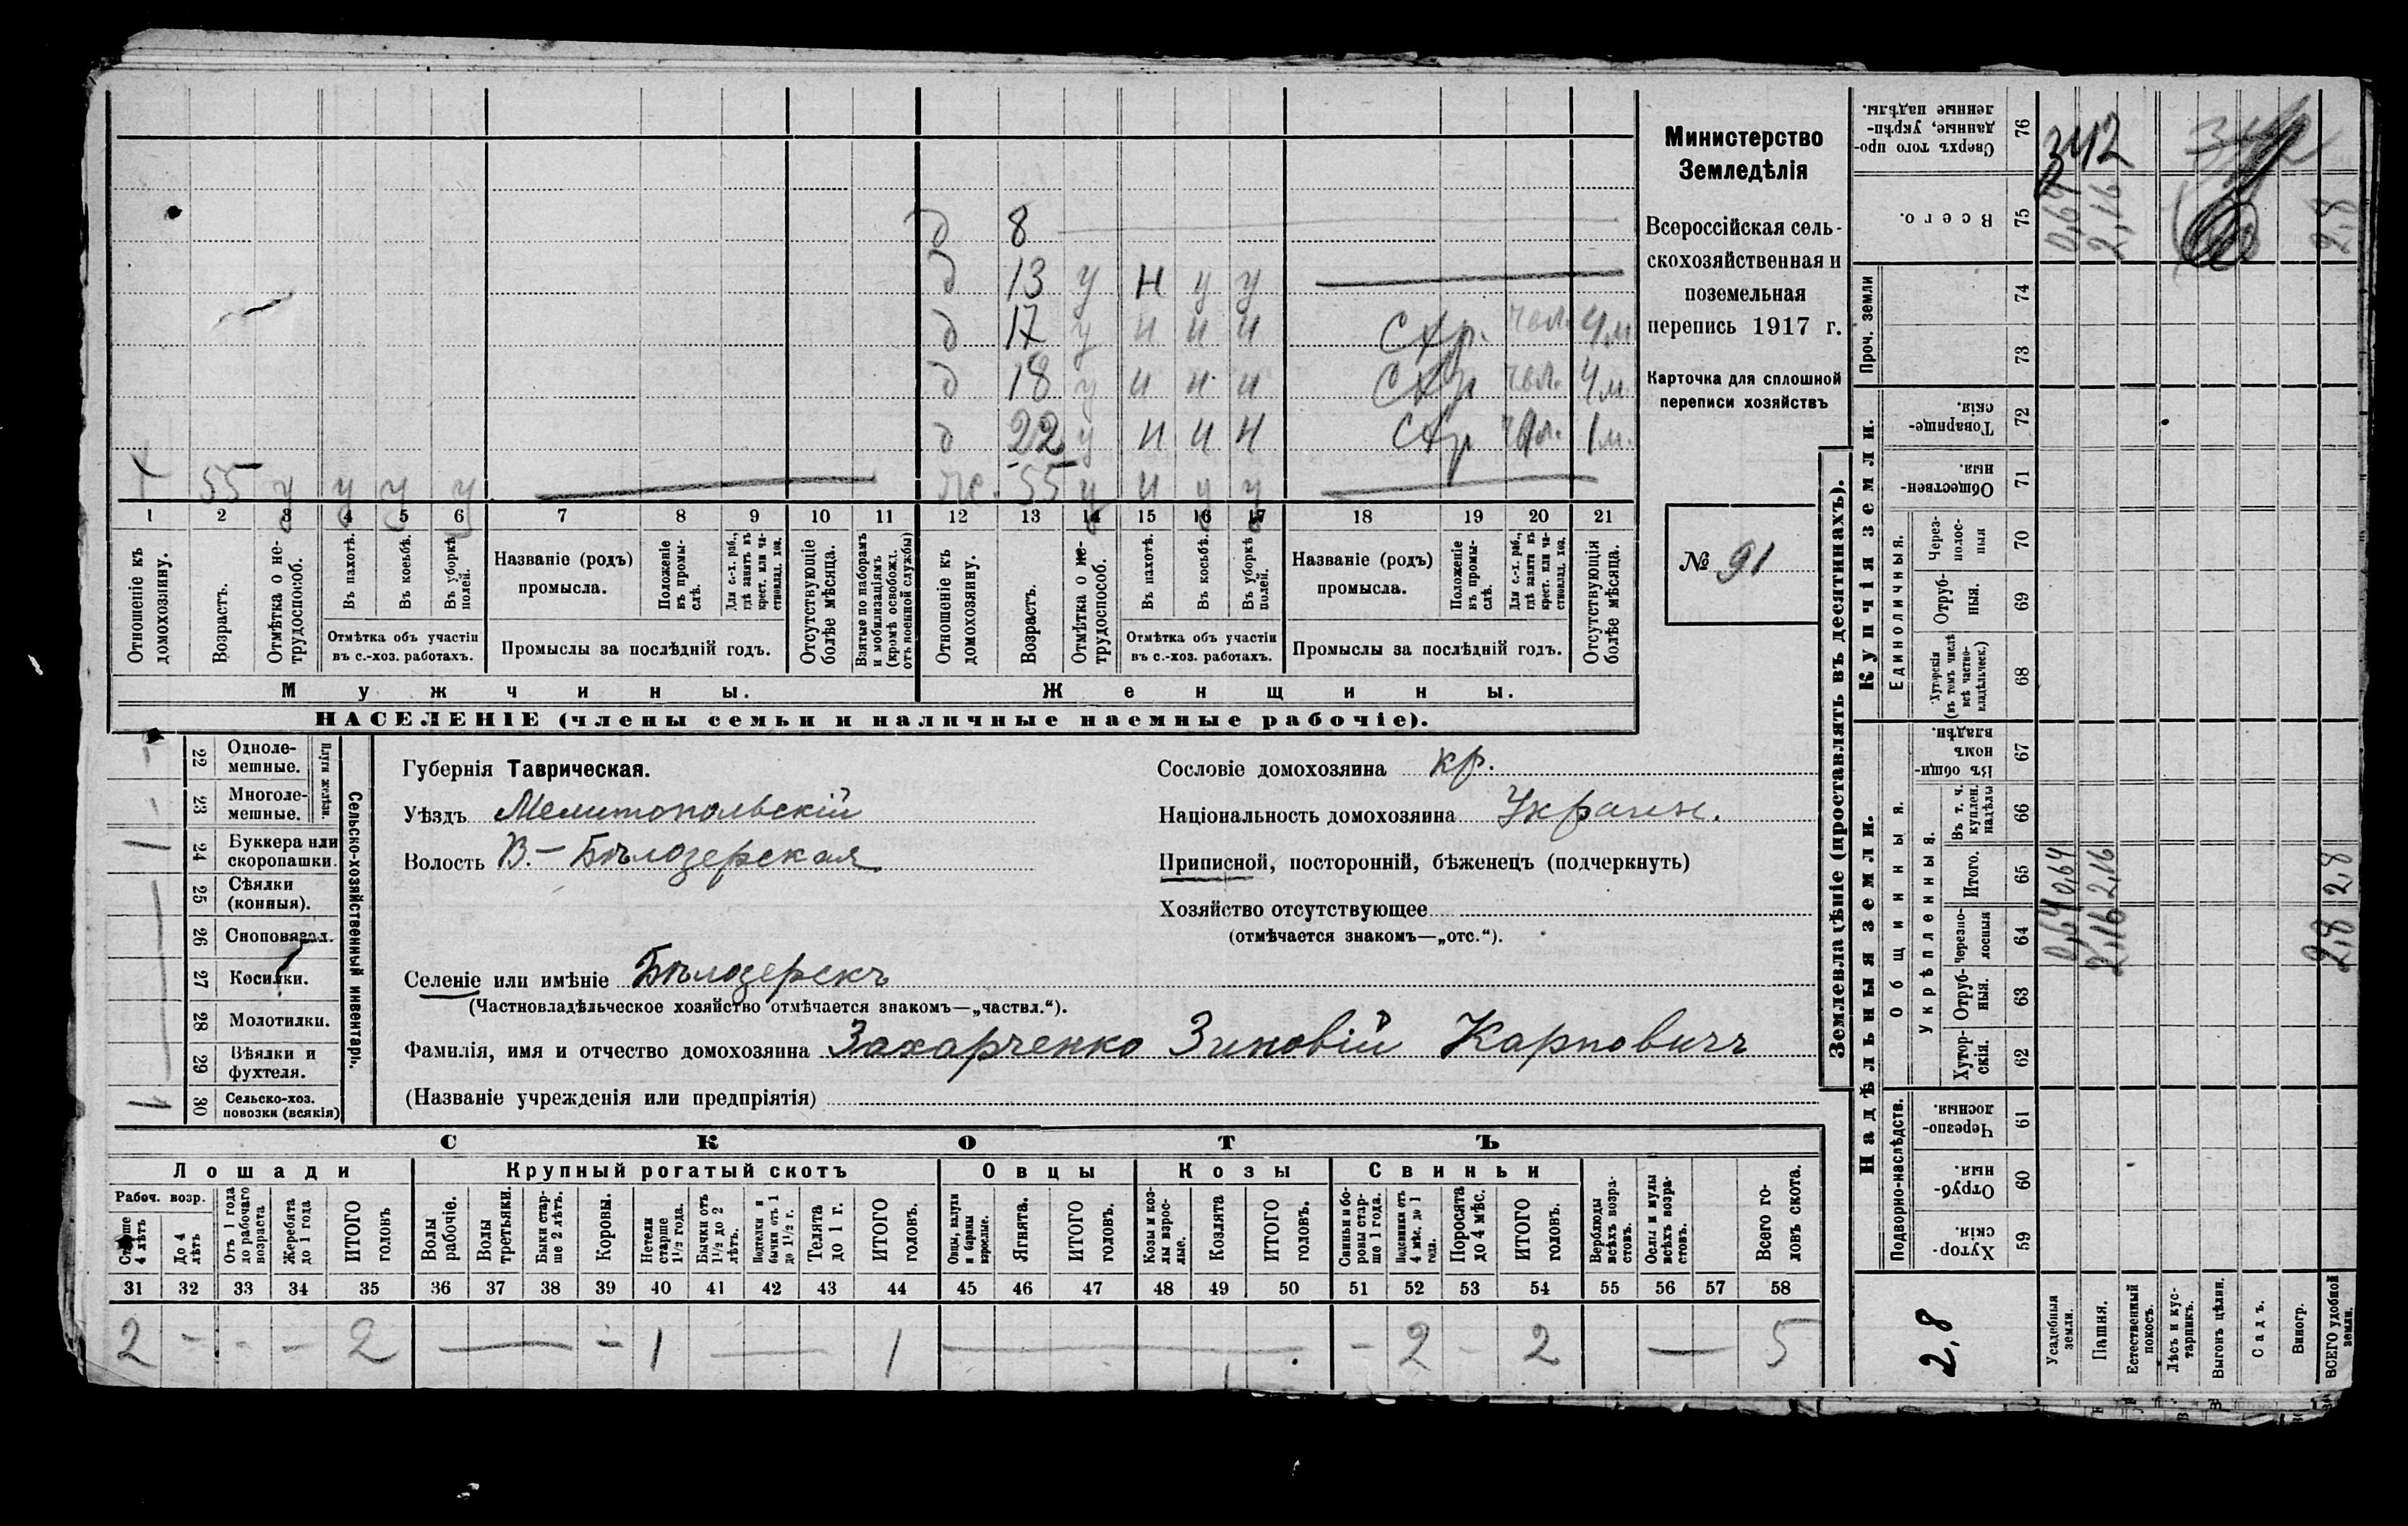 д 8
д 13 у н у у
д 17 у н н н Схр. чвл. 4 м
д 18 у н н н Схр чвл. 4 м.
д 22 у н н н Схр чвл. 1 м.
55 у у у у ж. 55 у н у у
1 2 3 4 5 6 7 8 9 10 11 12 13 14 15 16 17 18 19 20 21
Отношеніе къ домохозяину.
Возрастъ.
Отмѣтка о не-трудоспособ.
Въ пахотѣ.
Въ косьбѣ.
Въ уборкѣ полей.
Отмѣтка объ участіи
въ с.-хоз. работахъ.
Названіе (родъ)
промысла.
Положеніе въ промы-слѣ.
Для с.-х. раб., гдѣ занятъ въ крест. или ча-стновлад. хоз.
Промыслы за послѣдній годъ.
Отсутствующіе болѣе мѣсяца.
Взятые по наборамъ и мобилизаціямъ (кромѣ освобожд. отъ военной службы)
Отношеніе къ домохозяину.
Возрастъ.
Отмѣтка о не-трудоспособ.
Въ пахотѣ.
Въ косьбѣ.
Въ уборкѣ полей.
Отмѣтка объ участіи
въ с.-хоз. работахъ.
Названіе (родъ)
промысла.
Положеніе въ промы-слѣ.
Для с.-х. раб., гдѣ занята въ крест. или ча-стновлад. хоз.
Промыслы за послѣдній годъ.
Отсутствующія болѣе мѣсяца.
Мужчины. Женщины.
НАСЕЛЕНІЕ (члены семьи и наличные наемные рабочіе).
Министерство
Земледѣлія
Всероссійская сель-
скохозяйственная и
поземельная
перепись 1917 г.
Карточка для сплошной
переписи хозяйствъ
№ 91
22 Одноле-
мешные.
23 Многоле-
мешные.
Плуги желѣзн.
24 Буккера или
скоропашки.
25 Сѣялки
(конныя).
26 Сноповязал.
27 Косилки.
28 Молотилки.
29 Вѣялки и
фухтеля.
30 Сельско-хоз.
повозки (всякія)
1
Сельско-хозяйственный инвентарь.
Губернія Таврическая.
Уѣздъ Мелитопольскій
Волость В.-Бѣлозерская
Селеніе или имѣніе Бѣлозерскъ
(Частновладѣльческое хозяйство отмѣчается знакомъ—„частвл.“).
Фамилія, имя и отчество домохозяина Захарченко Зиновій Карповичъ
(Названіе учрежденія или предпріятія)
Сословіе домохозяина кр.
Національность домохозяина Украин.
Приписной, посторонній, бѣженецъ (подчеркнуть)
Хозяйство отсутствующее
(отмѣчается знакомъ—„отс.“).
СКОТЪ
Лошади Крупный рогатый скотъ Овцы Козы Свиньи
Рабоч. возр.
Старше 4 лѣтъ
До 4 лѣтъ
Отъ 1 года до рабочаго возраста
Жеребята до 1 года
ИТОГО головъ
Волы рабочіе.
Волы третьяки.
Быки стар-ше 2 лѣтъ.
Коровы.
Нетели старше 1½ года.
Бычки отъ 1½ до 2 лѣтъ.
Подтелки и бычки отъ 1 до 1½ г.
Телята до 1 г.
ИТОГО головъ.
Овцы, валухи и бараны взрослые.
Ягнята.
ИТОГО головъ.
Козы и коз-лы взрос-лые.
Козлята
ИТОГО головъ.
Свиньи и бо-ровы стар-ше 1 года.
Подсвинки отъ 4 мѣс. до 1 года.
Поросята до 4 мѣс.
ИТОГО головъ.
Верблюды всѣхъ возра-стовъ.
Ослы и мулы всѣхъ возра-стовъ.
Всего го-ловъ скота.
31 32 33 34 35 36 37 38 39 40 41 42 43 44 45 46 47 48 49 50 51 52 53 54 55 56 57 58
2 - - - 2 — - 1 — 1 — - 2 - 2 — 5
Землевладѣніе (проставлять въ десятинахъ).
Купчія земли.
Надѣльныя земли.
Сверхъ того про-данные, укрѣп-ленные надѣлы. 76
Всего. 75
Проч. земли 74
73
Товарище-скія. 72
Обществен-ныя. 71
Единоличныя.
Через-полос-ныя 70
Отруб-ныя. 69
Хуторскія (въ томъ числѣ всѣ частно-владѣльческ.) 68
Общинныя.
Въ общи-номъ владѣн. 67
Укрѣпленныя.
Въ т. ч. куплен. надѣлы 66
Итого. 65
Черезпо-лосныя 64
Отруб-ныя. 63
Хутор-скія. 62
Подворно-наслѣдств.
Черезпо-лосныя. 61
Отруб-ныя. 60
Хутор-скія. 59
342
0,64 2,16 2,8
0,64 2,16 2,8
0,64 2,16 2,8
2,8
Усадебныя земли.
Пашня.
Естественный покосъ.
Лѣсъ и кус-тарникъ.
Выгонъ цѣлин.
Садъ.
Виногр.
ВСЕГО удобной земли.